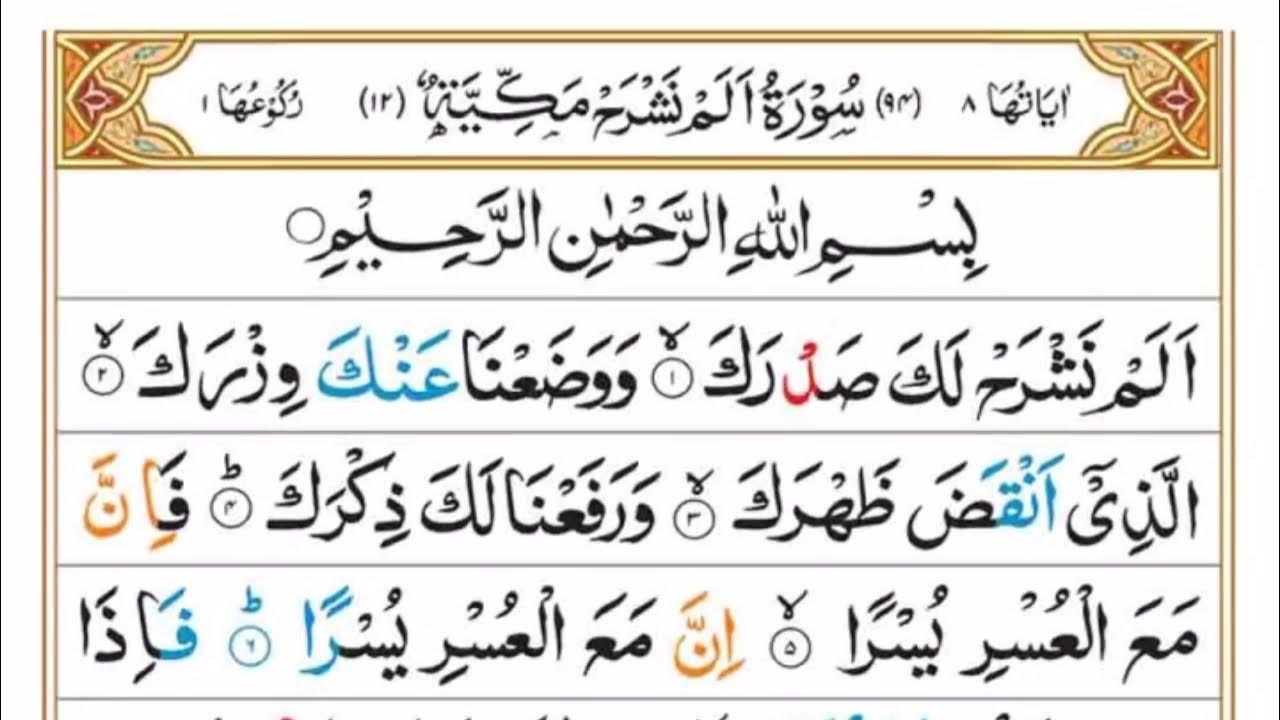 اٰیَاتُهَا ٨ (٩۴) سُوْرَةُ اَلَمْ نَشْرَحْ مَكِّیَّةٌ (١٢) رُكُوْعُهَا ١
بِسْمِ اللّٰهِ الرَّحْمٰنِ الرَّحِیْمِ ○
اَلَمْ نَشْرَحْ لَكَ صَدْرَكَ ۙ﴿١﴾ وَوَضَعْنَا عَنْكَ وِزْرَكَ ۙ﴿٢﴾
الَّذِیْۤ اَنْقَضَ ظَهْرَكَ ۙ﴿٣﴾ وَرَفَعْنَا لَكَ ذِكْرَكَ ؕ﴿۴﴾ فَاِنَّ
مَعَ الْعُسْرِ یُسْرًا ۙ﴿۵﴾ اِنَّ مَعَ الْعُسْرِ یُسْرًا ؕ﴿۶﴾ فَاِذَا